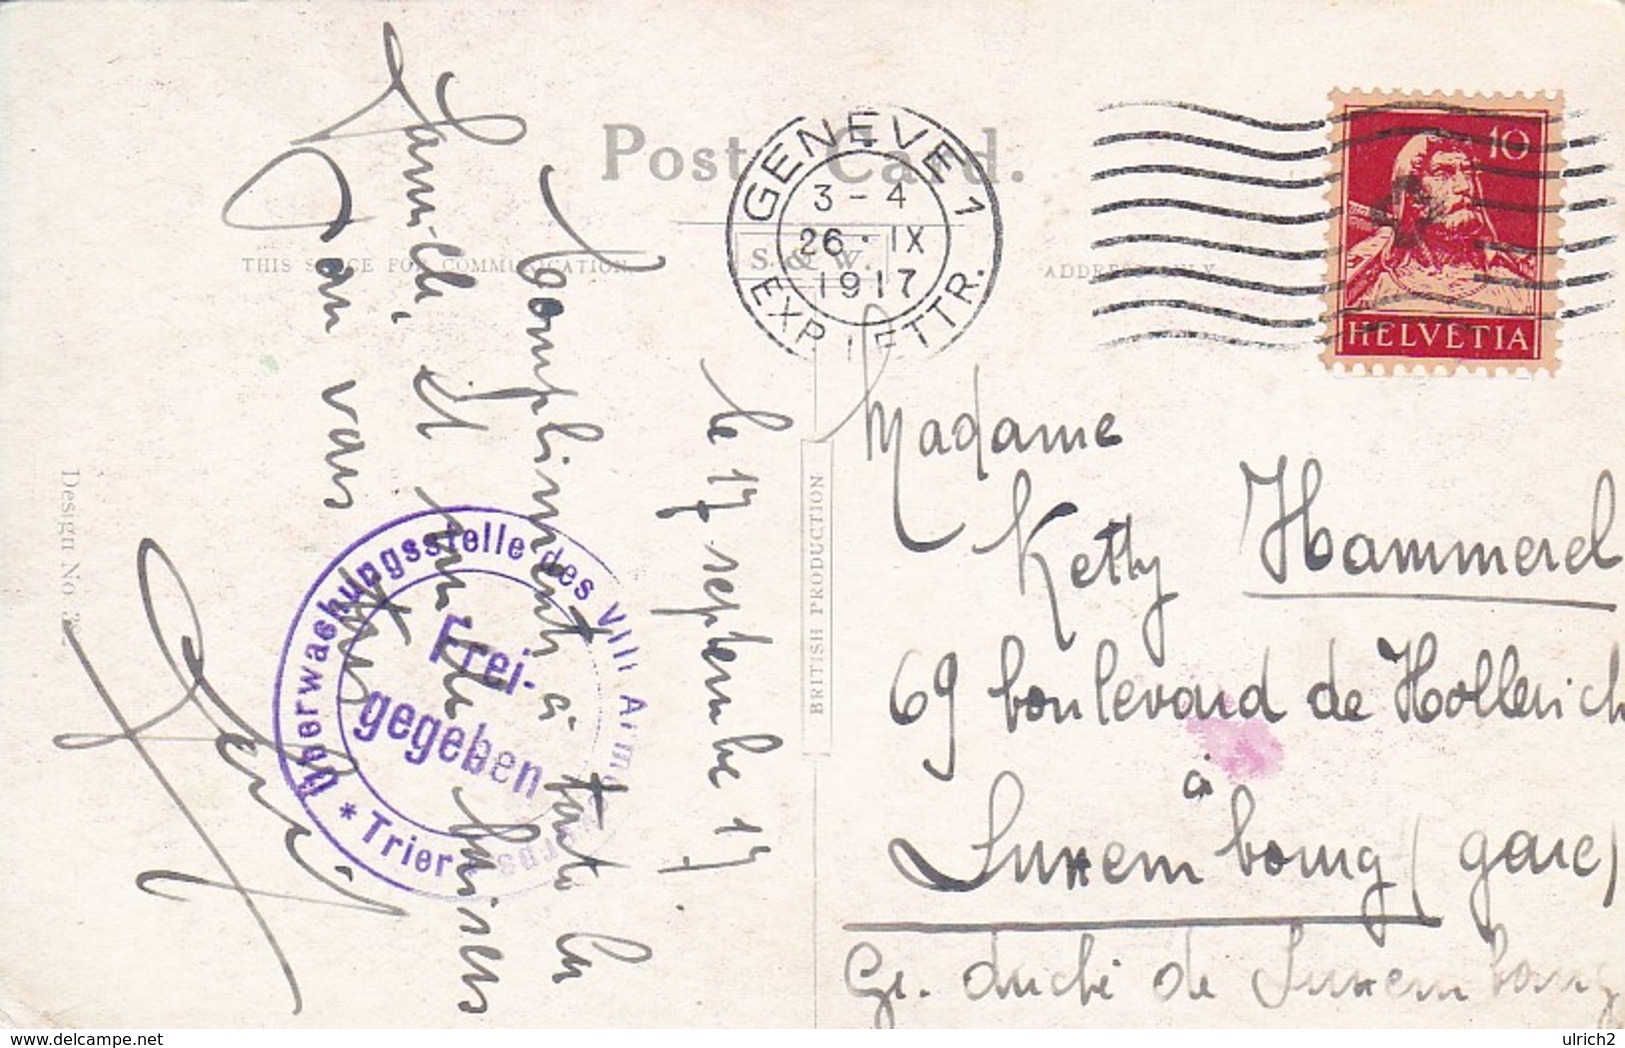 Post Card.
THIS SPACE FOR COMMUNICATION
ADDRESS ONLY
S. & W.
GENEVE 1
3 - 4
26. IX
1917
EXP. LETTR.
10
HELVETIA
le 17 septembre 17.
Compliments à toute la
famille et un de baisers
Ton vari
Überwachungsstelle des VIII Armeekorps
* Trier *
Frei-
gegeben
Design No.
BRITISH PRODUCTION
Madame
Ketty Hammerel
69 boulevard de Hollerich
à
Luxembourg (gare)
Gr. duché de Luxembourg
delcampe.net
ulrich2